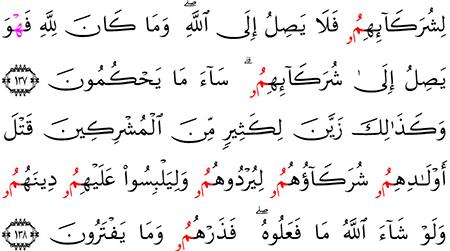 لِشُرَكَآئِهِمُۥ فَلَا يَصِلُ إِلَى ٱللَّهِۖ وَمَا كَانَ لِلَّهِ فَهْوَ
يَصِلُ إِلَىٰ شُرَكَآئِهِمُۥۗ سَآءَ مَا يَحْكُمُونَ ١٣٧
وَكَذَٰلِكَ زَيَّنَ لِكَثِيرٍ مِّنَ ٱلْمُشْرِكِينَ قَتْلَ
أَوْلَٰدِهِمُۥ شُرَكَآؤُهُمُۥ لِيُرْدُوهُمُۥ وَلِيَلْبِسُواْ عَلَيْهِمُۥ دِينَهُمُۥ
وَلَوْ شَآءَ ٱللَّهُ مَا فَعَلُوهُۖ فَذَرْهُمُۥ وَمَا يَفْتَرُونَ ١٣٨